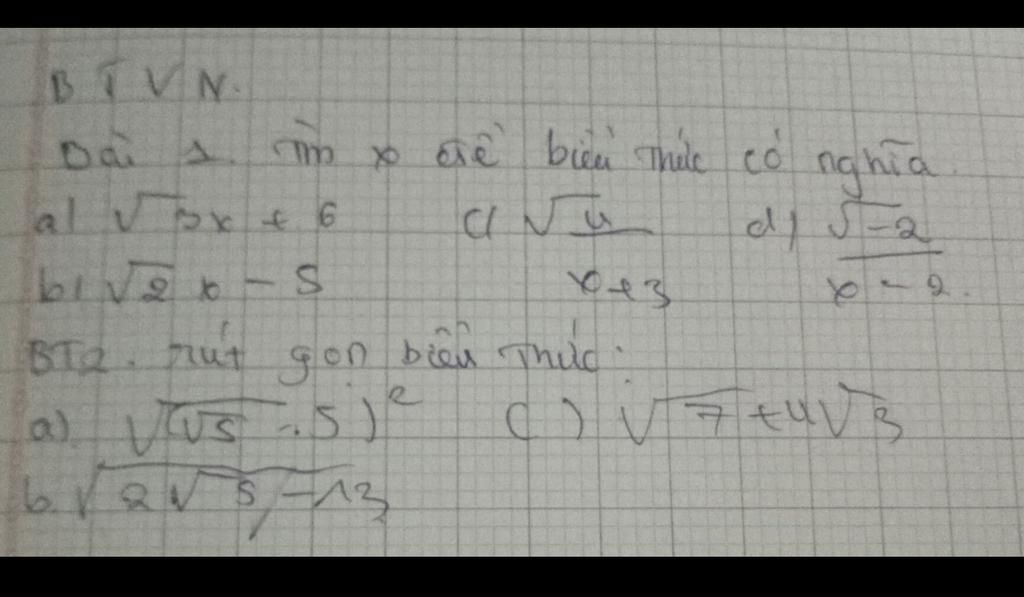 BTVN.
Bài 1. Tìm x để biểu thức có nghĩa.
a) √3x + 6 c) √4/x+3 d) √-2/x-2.
b) √2x - 5
BT2. rút gọn biểu thức:
a) √(√5 - 5)² c) √7+4√3
b. √2√5-13